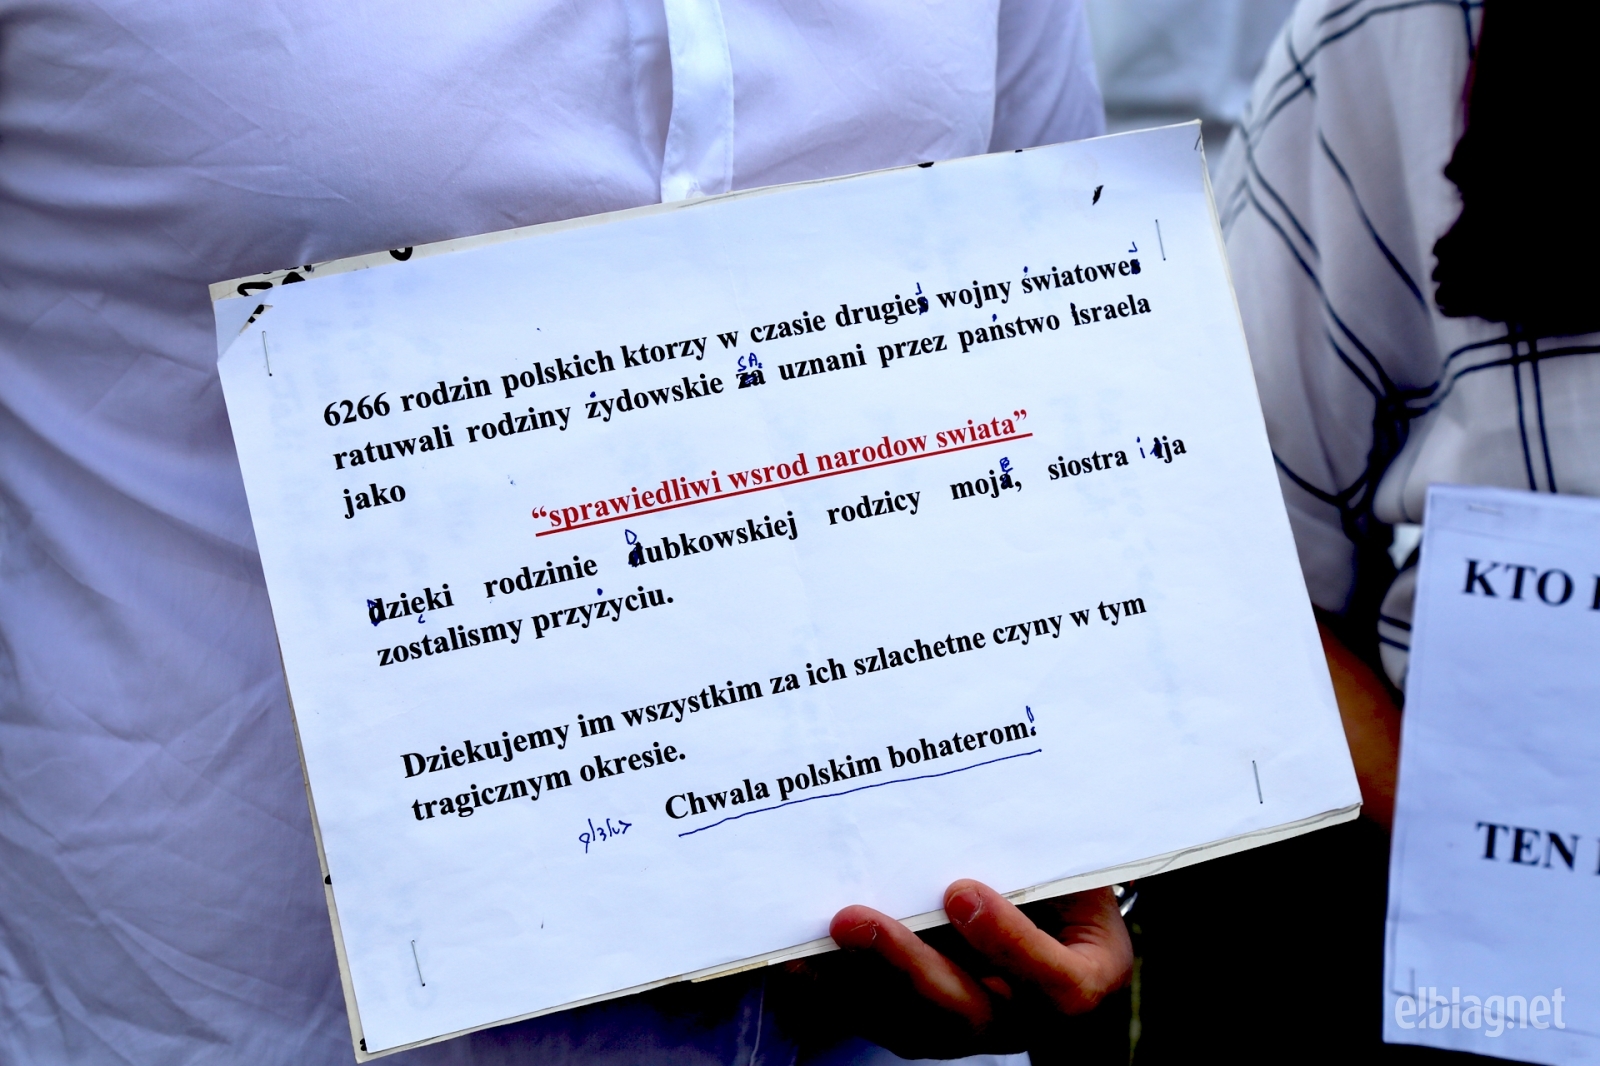 6266 rodzin polskich ktorzy w czasie drugiej wojny światowej
ratuwali rodziny żydowskie SĄ uznani przez państwo israela
jako
“sprawiedliwi wsrod narodow swiata”
Dzięki rodzinie Dubkowskiej rodzicy moje, siostra i ja
zostalismy przyżyciu.
Dziekujemy im wszystkim za ich szlachetne czyny w tym
tragicznym okresie.
Chwala polskim bohaterom!
KTO
TEN
elblag.net